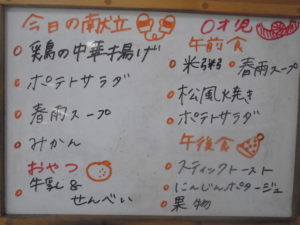 今日の献立
鶏の中華揚げ
ポテトサラダ
春雨スープ
みかん
おやつ
牛乳&
せんべい
0才児
午前食
米粥 春雨スープ
松風焼き
ポテトサラダ
午後食
スティックトースト
にんじんポタージュ
果物